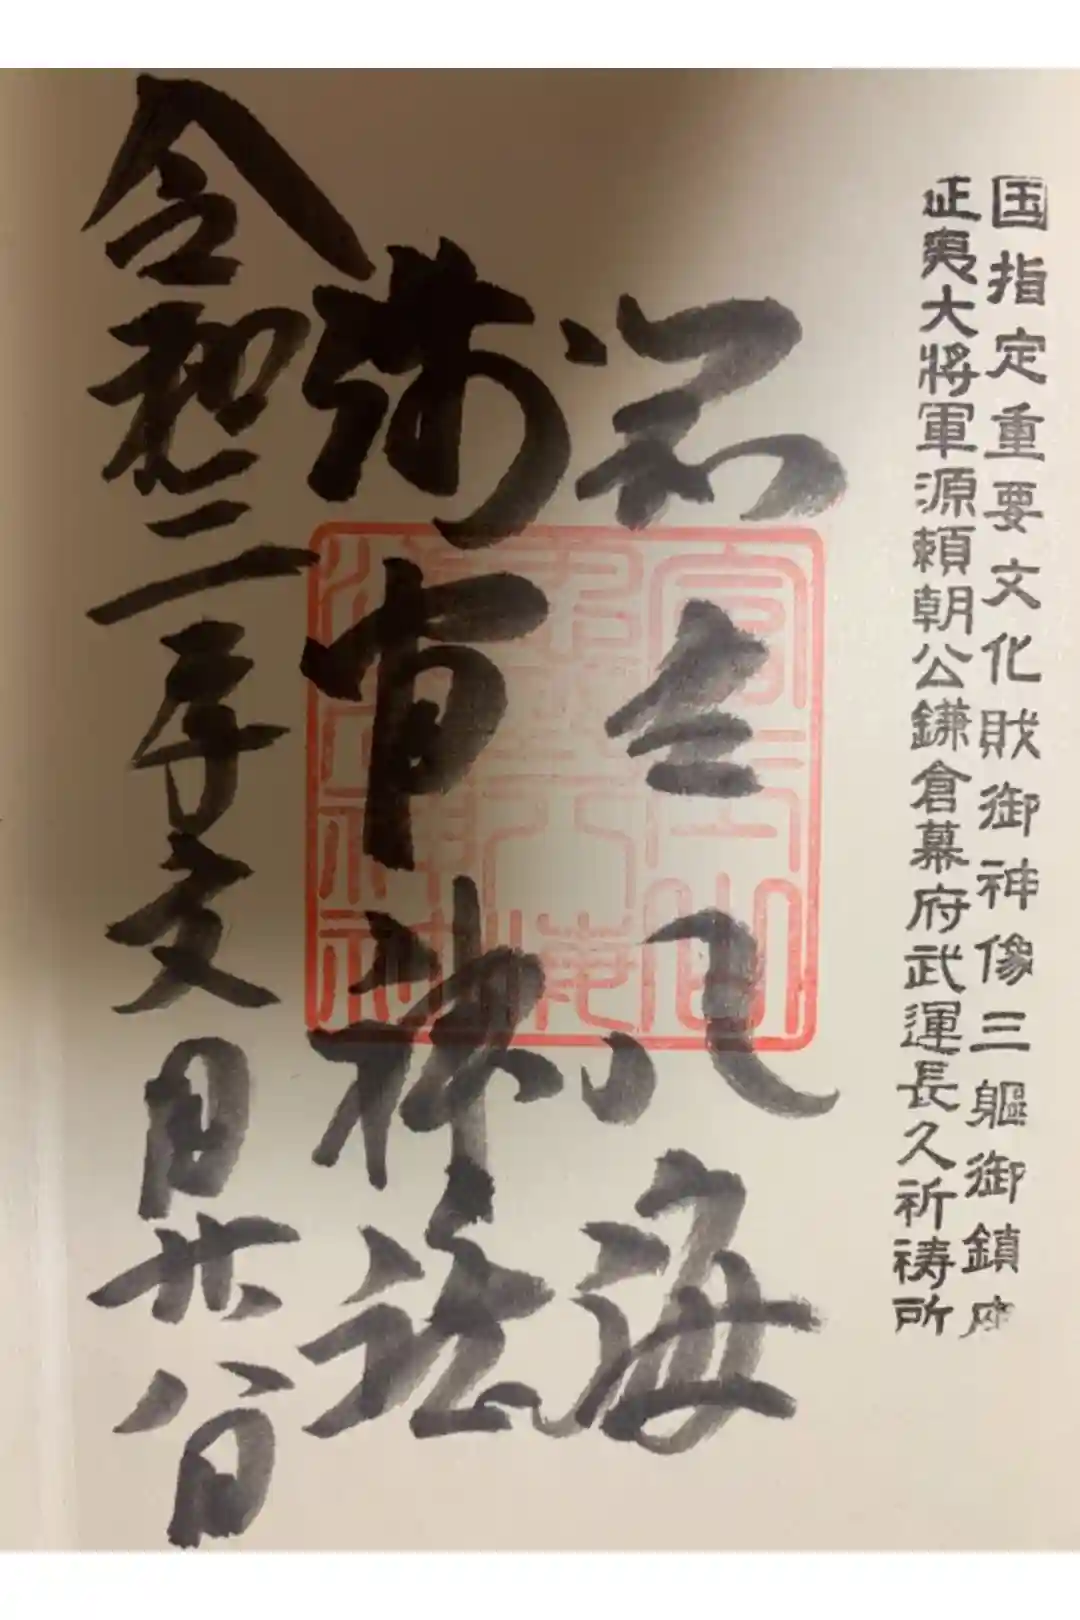 国指定重要文化財御神像三軀御鎮座
征夷大将軍源頼朝公鎌倉幕府武運長久祈祷所
忍野八海
浅間神社
令和二年文月廿八日